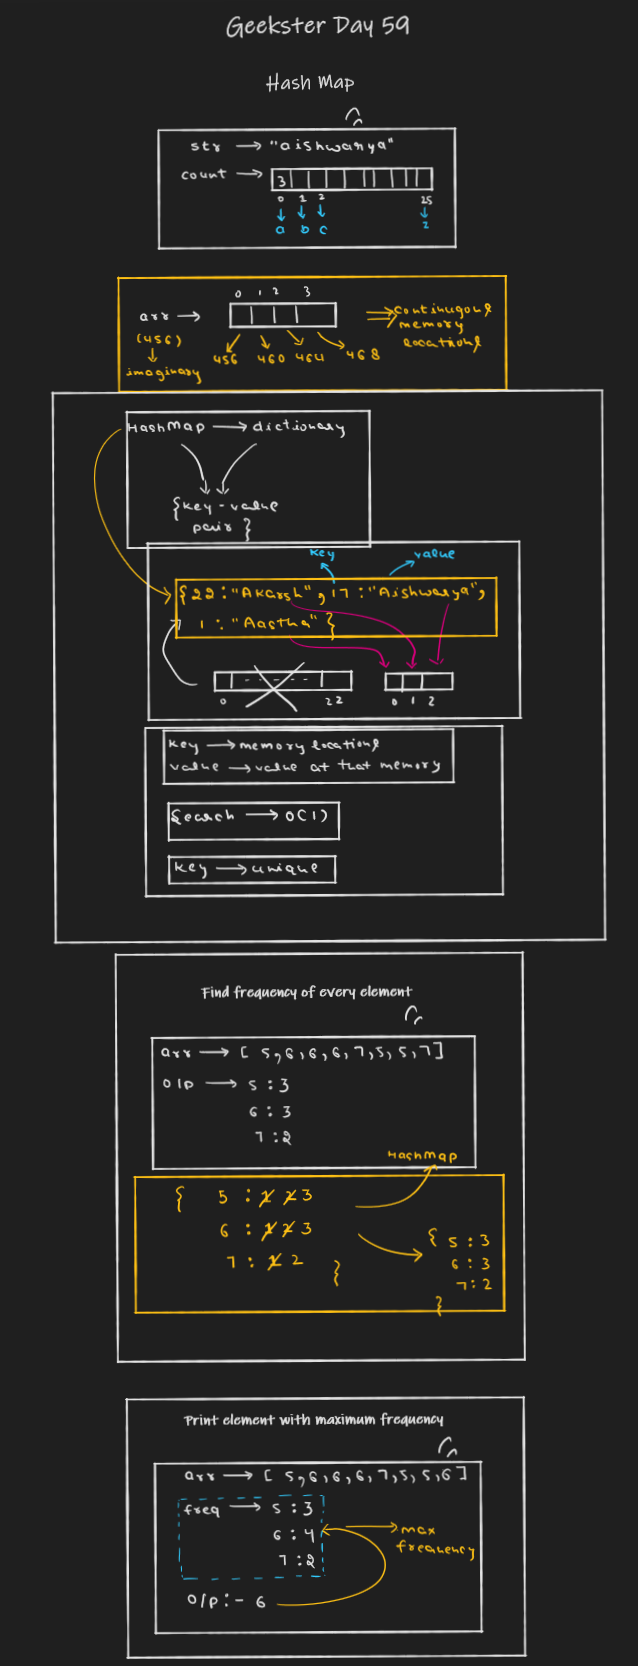 Geekster Day 59
Hash Map
str → "aishwarya"
count → 3
0 1 2 25
a b c z
0 1 2 3
arr →
(456)
imaginary
456 460 464 468
⇒ continugous
memory
locations
HashMap → dictionary
{key-value
pair}
key value
{22:"Akarsh", 17:"Aishwarya",
1:"Aastha"}
0 22 0 1 2
key → memory locations
value → value at that memory
Search → O(1)
key → unique
Find frequency of every element
arr → [ 5,6,6,6,7,5,5,7]
O/P → 5 : 3
6 : 3
7 : 2
HashMap
{ 5 : 1 2 3
6 : 1 2 3
7 : 1 2 }
{ 5 : 3
6 : 3
7 : 2
}
Print element with maximum frequency
arr → [ 5,6,6,6,7,5,5,6]
freq → 5 : 3
6 : 4 → max
frequency
7 : 2
O/P :- 6